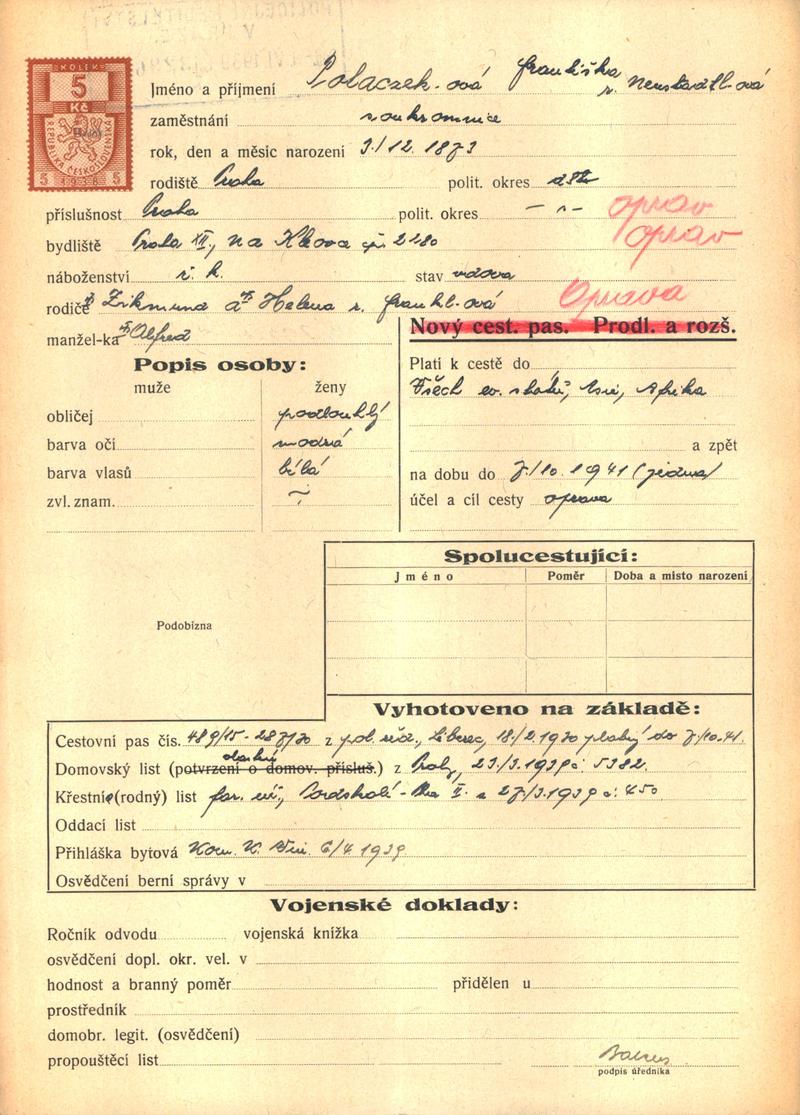 KOLEK
5
Kč
REPUBLIKA ČESKOSLOVENSKÁ
5 1938 5
Jméno a příjmení Polaczek-ová Františka r. Neustadtl-ová
zaměstnání soukromnice
rok, den a měsíc narození 3./12. 1873
rodiště Praha polit. okres
příslušnost Praha polit. okres — " — oprav
bydliště Praha XII., Na čp. 2280 oprav
náboženství ř. k. stav vdova
rodiče Zikmund a Helena r. Frankl-ová Oprava
manžel-ka Alfred
Nový cest. pas. Prodl. a rozš.
Popis osoby:
muže ženy
obličej podlouhlý
barva očí modrá
barva vlasů bílá
zvl. znam.
Platí k cestě do
Všech ev. států, Asie, Afrika
a zpět
na dobu do 7/10. 1941 (jedna)
účel a cíl cesty oprava
Spolucestující:
Jméno Poměr Doba a místo narození
Podobizna
Vyhotoveno na základě:
Cestovní pas čís. 489/15-2877/30 z pol. úřa., Liberec, 18./2. 1930 platný do 7/10.41.
Domovský list (potvrzení o domov. přísluš.) z Prahy, 23./3. 1939 č. 5382.
Křestní (rodný) list far. úř., - Pha II. z 27/3. 1939 č. 450
Oddací list
Přihláška bytová Kom. 6/4 1939
Osvědčení berní správy v
Vojenské doklady:
Ročník odvodu vojenská knížka
osvědčení dopl. okr. vel. v
hodnost a branný poměr přidělen u
prostředník
domobr. legit. (osvědčení)
propouštěcí list
podpis úředníka